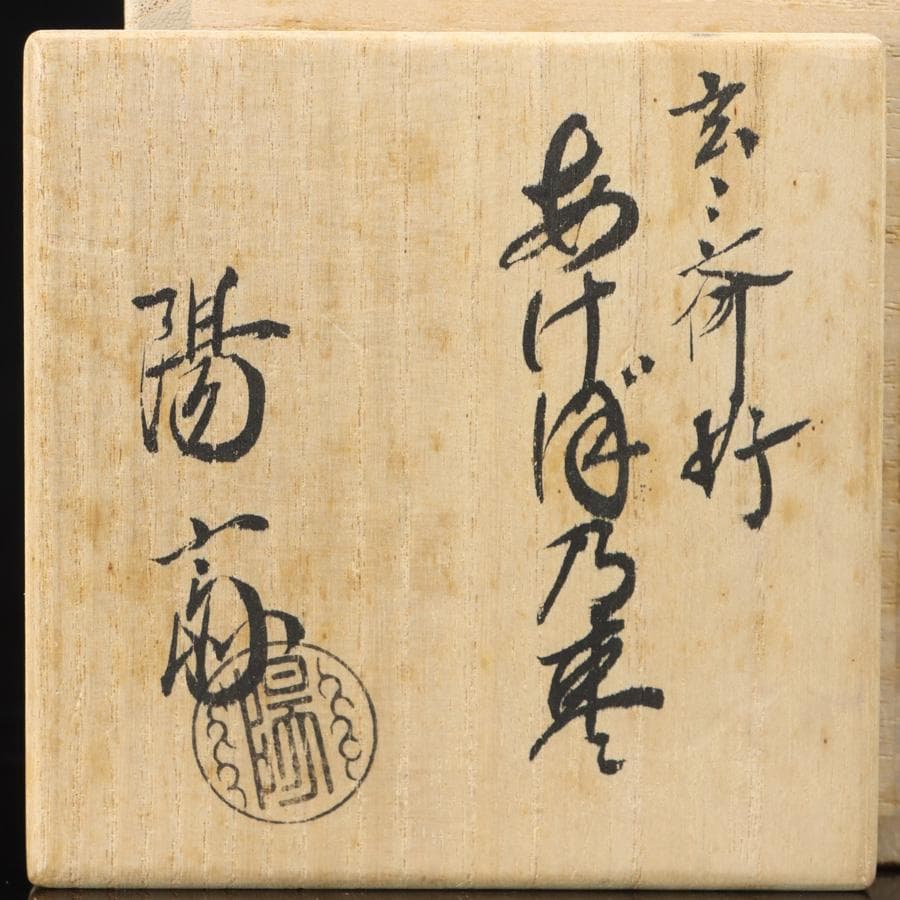 玄々斎好
あけぼ乃棗
陽斎
陽